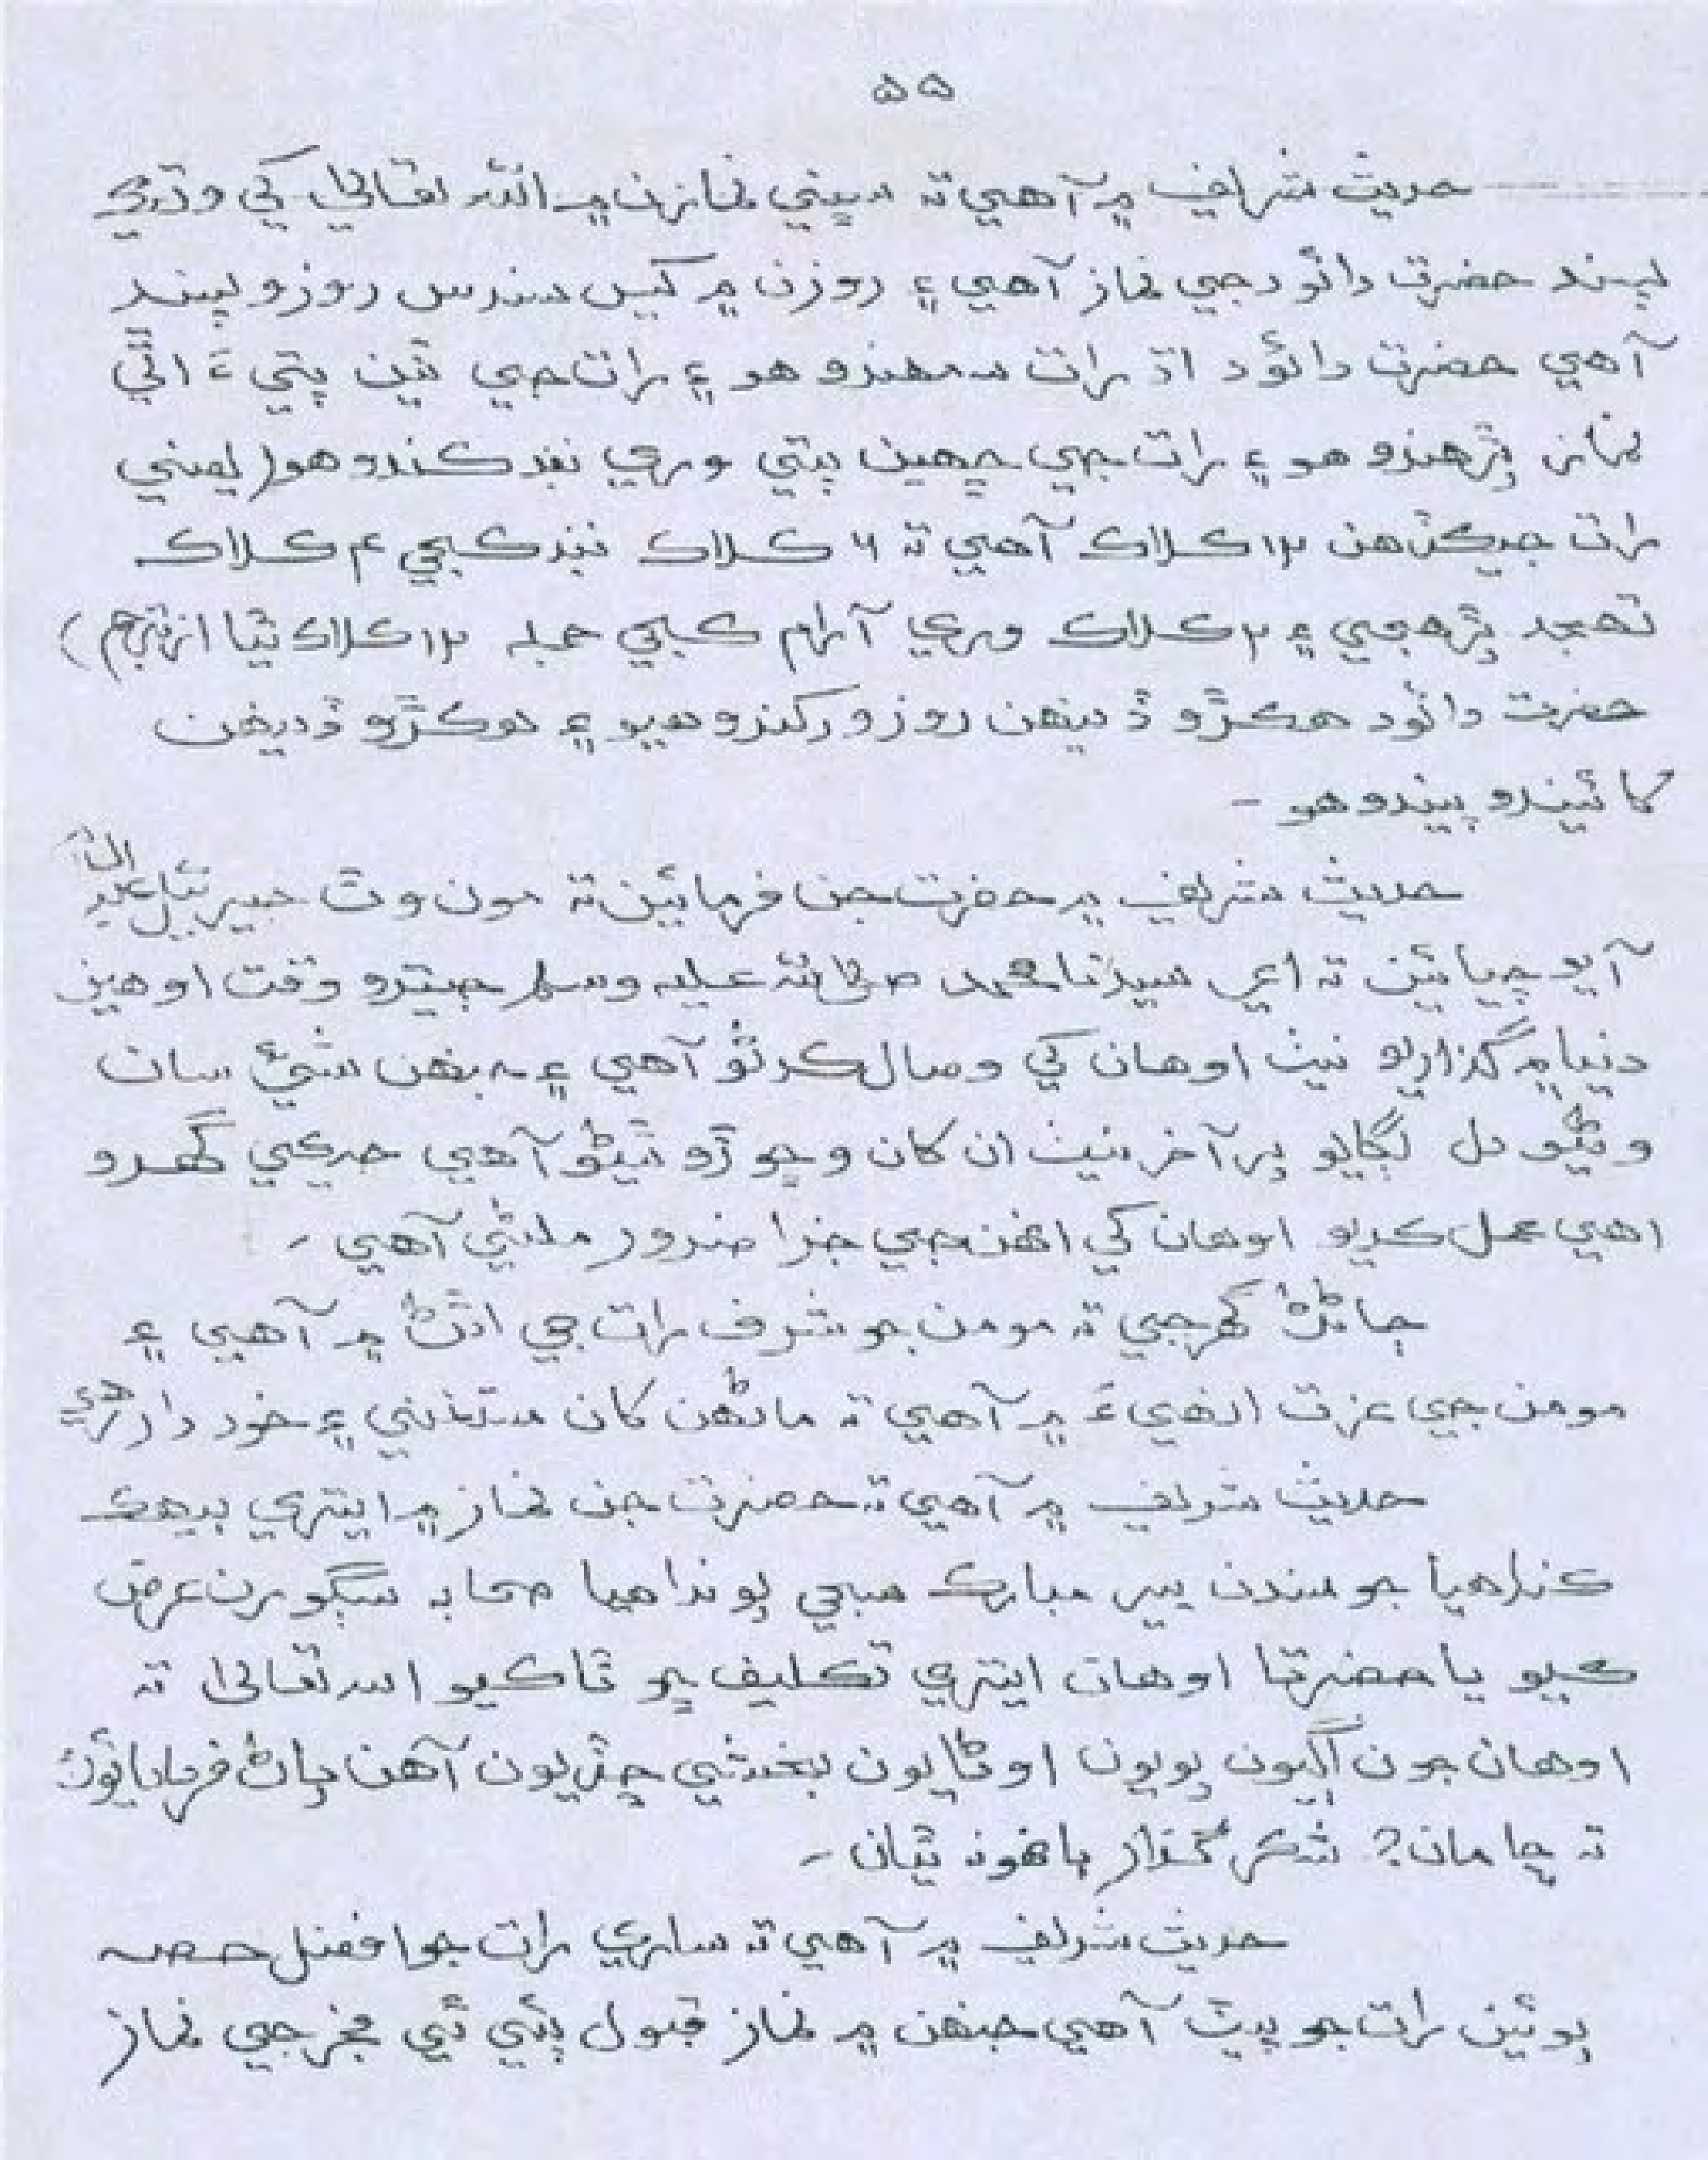 ۵۵
حديث شريف ۾ آهي ته سڀني نمازن ۾ الله تعاليٰ کي وڌيڪ
پسند حضرت دائود جي نماز آهي ۽ روزن ۾ کيس سندس روزو پسند
آهي حضرت دائود اڌ رات سمهندو هو ۽ رات جي ٽين پتي ۾ اٿي
نماز پڙهندو هو ۽ رات جي ڇهين پتي وري ننڊ ڪندو هو (يعني
رات جيڪڏهن ۱۲ ڪلاڪ آهي ته ۶ ڪلاڪ ننڊ ڪجي ۴ ڪلاڪ
تهجد پڙهجي ۽ ۲ ڪلاڪ وري آرام ڪجي جمله ۱۲ ڪلاڪ ٿيا از مترجم)
حضرت دائود هڪڙو ڏينهن روزو رکندو هيو ۽ هڪڙو ڏينهن
کائيندو پيئندو هو -
حديث شريف ۾ حضرت جن فرمائين ته مون وٽ جبيرئيل عليه
آيو چيائين ته اي سيدنا محمد صلي الله عليه وسلم جيترو وقت اوهين
دنيا ۾ گذاريو نيٺ اوهان کي وصال ڪرڻو آهي ۽ جنهن شيءِ سان
وڻيو دل لڳايو پر آخر نيٺ ان کان وڇوڙو ٿيڻو آهي جيڪي گهرو
اهي عمل ڪريو اوهان کي انهن جي جزا ضرور ملڻي آهي -
ڄاڻڻ گهرجي ته مومن جو شرف رات جي اٿڻ ۾ آهي ۽
مومن جي عزت انهيءَ ۾ آهي ته ماڻهن کان مستغني ۽ خود دار
حديث شريف ۾ آهي ته حضرت جن نماز ۾ ايتري بيهڪ
ڪندا هيا جو سندن پير مبارڪ سڄي پوندا هيا صحابه سڳورن عرض
ڪيو يا حضرتا اوهان ايتري تڪليف ڇو ٿا ڪيو الله تعاليٰ ته
اوهان جون اڳيون پويون اوڻايون بخشي ڇڏيون آهن پاڻ فرمايائون
ته ڇا مان؟ شڪر گذار ٻانهو نه ٿيان -
حديث شريف ۾ آهي ته ساري رات جو افضل حصه
پوئين رات جو پيٽ آهي جنهن ۾ نماز قبول پئي ٿي فجر جي نماز